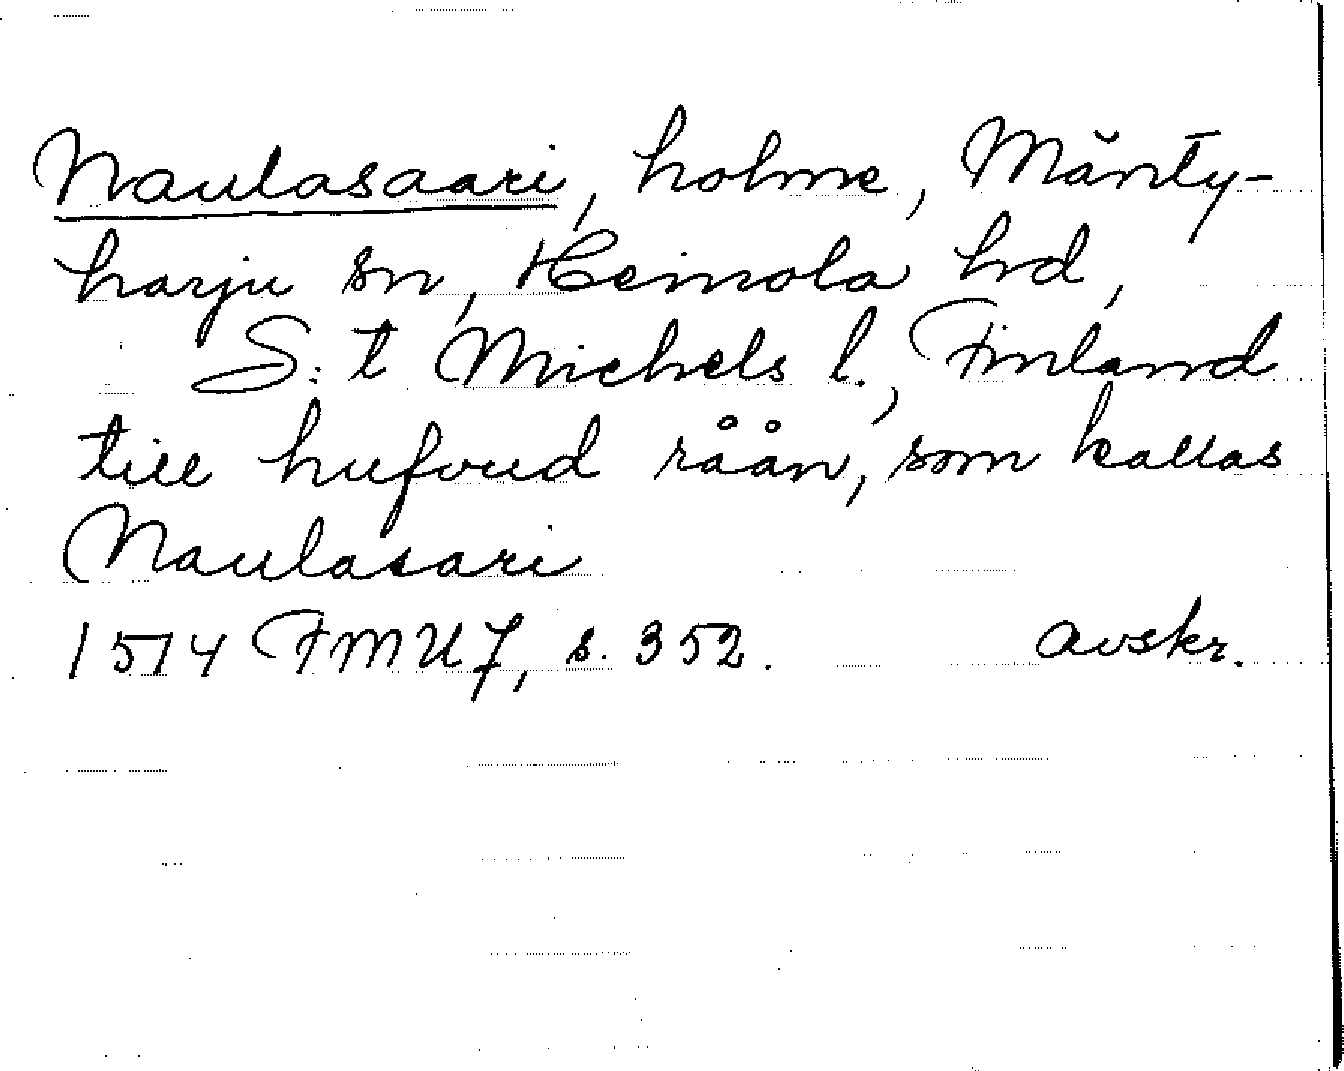 Naulasaari, holme, Mänty-
harju sn, Heinola hd,
S:t Michels l., Finland
till hufvud råån, som kallas
Naulasari
1514 FMU 7, s. 352. avskr.